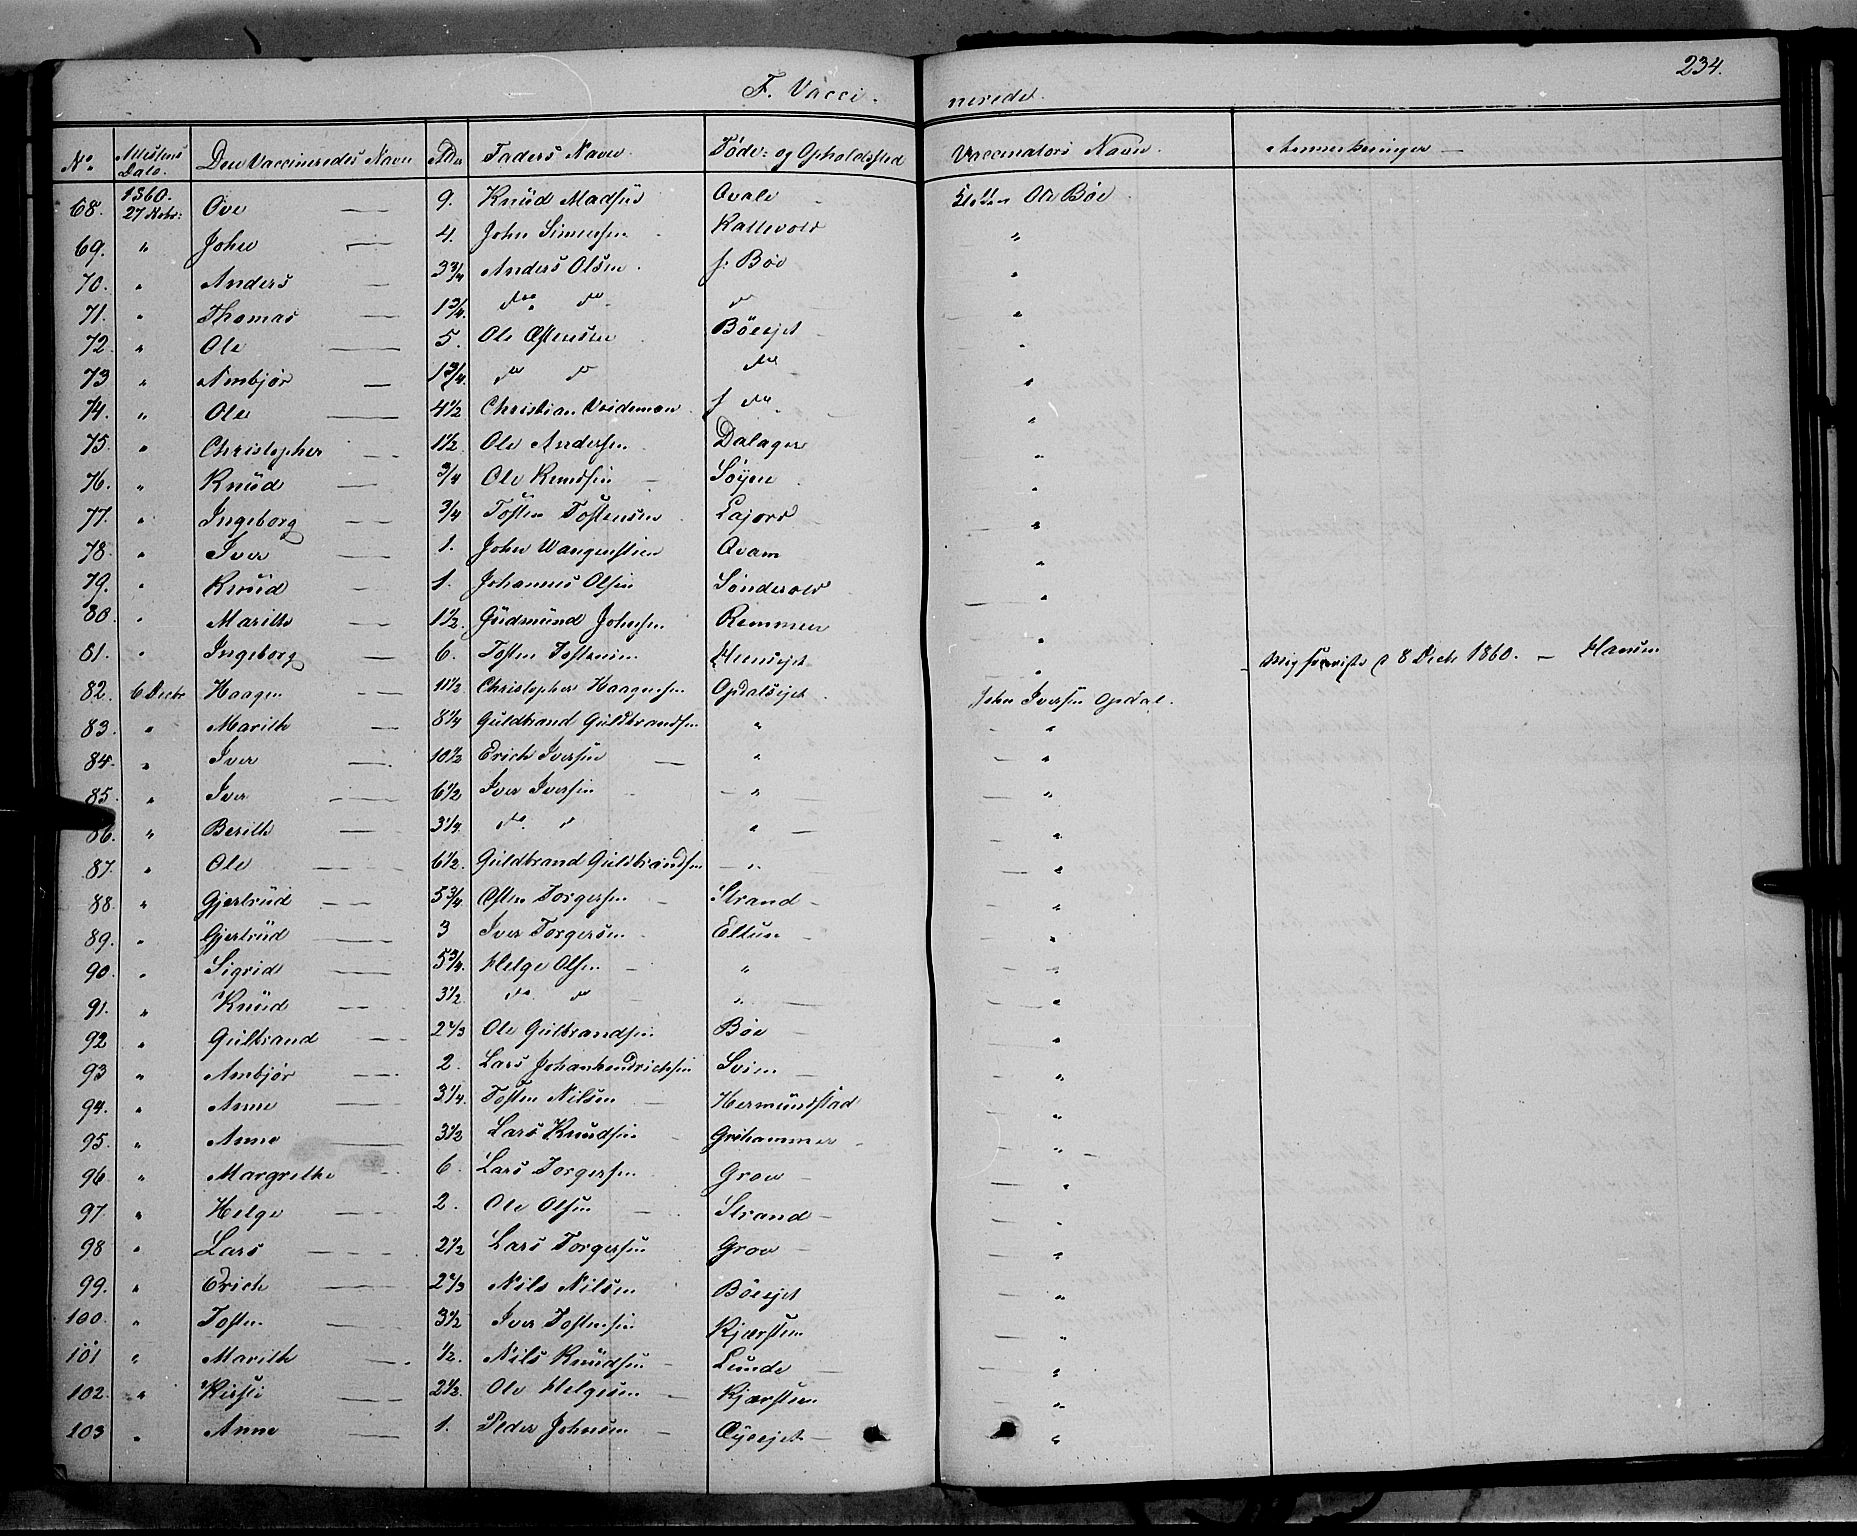 234.
F. Vacci- nerede.
No. Attestens Dato. Den Vaccineredes Navn Alder Faders Navn Føde- og Opholdssted Vaccinators Navn Anmerkninger
68. 1860. 27 Nobr: Ove 9. Knúd Madsen Qvale Ole Bøe
69. " John 4. John Simensen Kattevold "
70. " Anders 3 3/4 Anders Olsen f. Bøe "
71. " Thomas 1 3/4. do do do "
72. " Ole 5. Ole Østensen Bøeejet "
73 " Ambjør 1 3/4. do do do "
74. " Ole 4 1/2 Christian f do "
75. " Christopher 1 1/2. Ole Andersen Dalager "
76. " Knúd 3/4 Ole Knudsen Søyne "
77. " Ingeborg 3/4 Tosten Tostensen Lajord "
78. " Iver 1. John Wangensteen Qvam "
79. " Knúd 1. Johannes Olsen Sønderold "
80. " Marith 1 1/2. Gúdmúnd Johnsen Remmen "
81. " Ingeborg 6. Tosten Tostensen "
8 Decbr 1860. — Hansen
82. 6 Decbr Haagen 11 1/2. Christopher Haagensen Opdalsejet John Iversen Opdal.
83. " Marith 8 1/4 Guldbrand Gúldbrandsen " "
84. " Iver 10 1/2 Erich Iversen " "
85. " Iver 6 1/2 Iver Iversen " "
86. " Berith 3 1/4. do. do " "
87. " Ole 6 1/2. Gúldbrand Gúldbrandsen " "
88. " Gjertrúd 5 3/4 Østen Torgersen Strand "
89. " Gjertrúd 3 Iver Torgersen Eltun "
90. " Sigrid 5 3/4. Helge Olsen " "
91. " Knúd 3 1/2 do. do " "
92 " Gúlbrand 2 2/3 Ole Gúlbrandsen Bøe "
93 " Ambjør 2. Lars Johanhendrichsen Sviin "
94. " Anne 3 1/4. Tosten Nilsen Hermúndstad "
95. " Anne 3 1/2 Lars Knúdsen Grihammer "
96 " Margrethe 6. Lars Torgersen Grov "
97. " Helge 2. Ole Olsen Strand "
98 " Lars 2 1/2 Lars Torgersen Grov "
99. " Erich 2 2/3 Nils Nilsen Bøeejet "
100. " Tosten 3 1/2 Iver Tostensen Kjærsteen "
101 " Marith 1/2. Nils Knúdsen Lunde "
102. " Kirsti 2 1/2. Ole Helgesen Kjærsteen "
103 " Anne 1. Peder Johnsen Øyeejet "